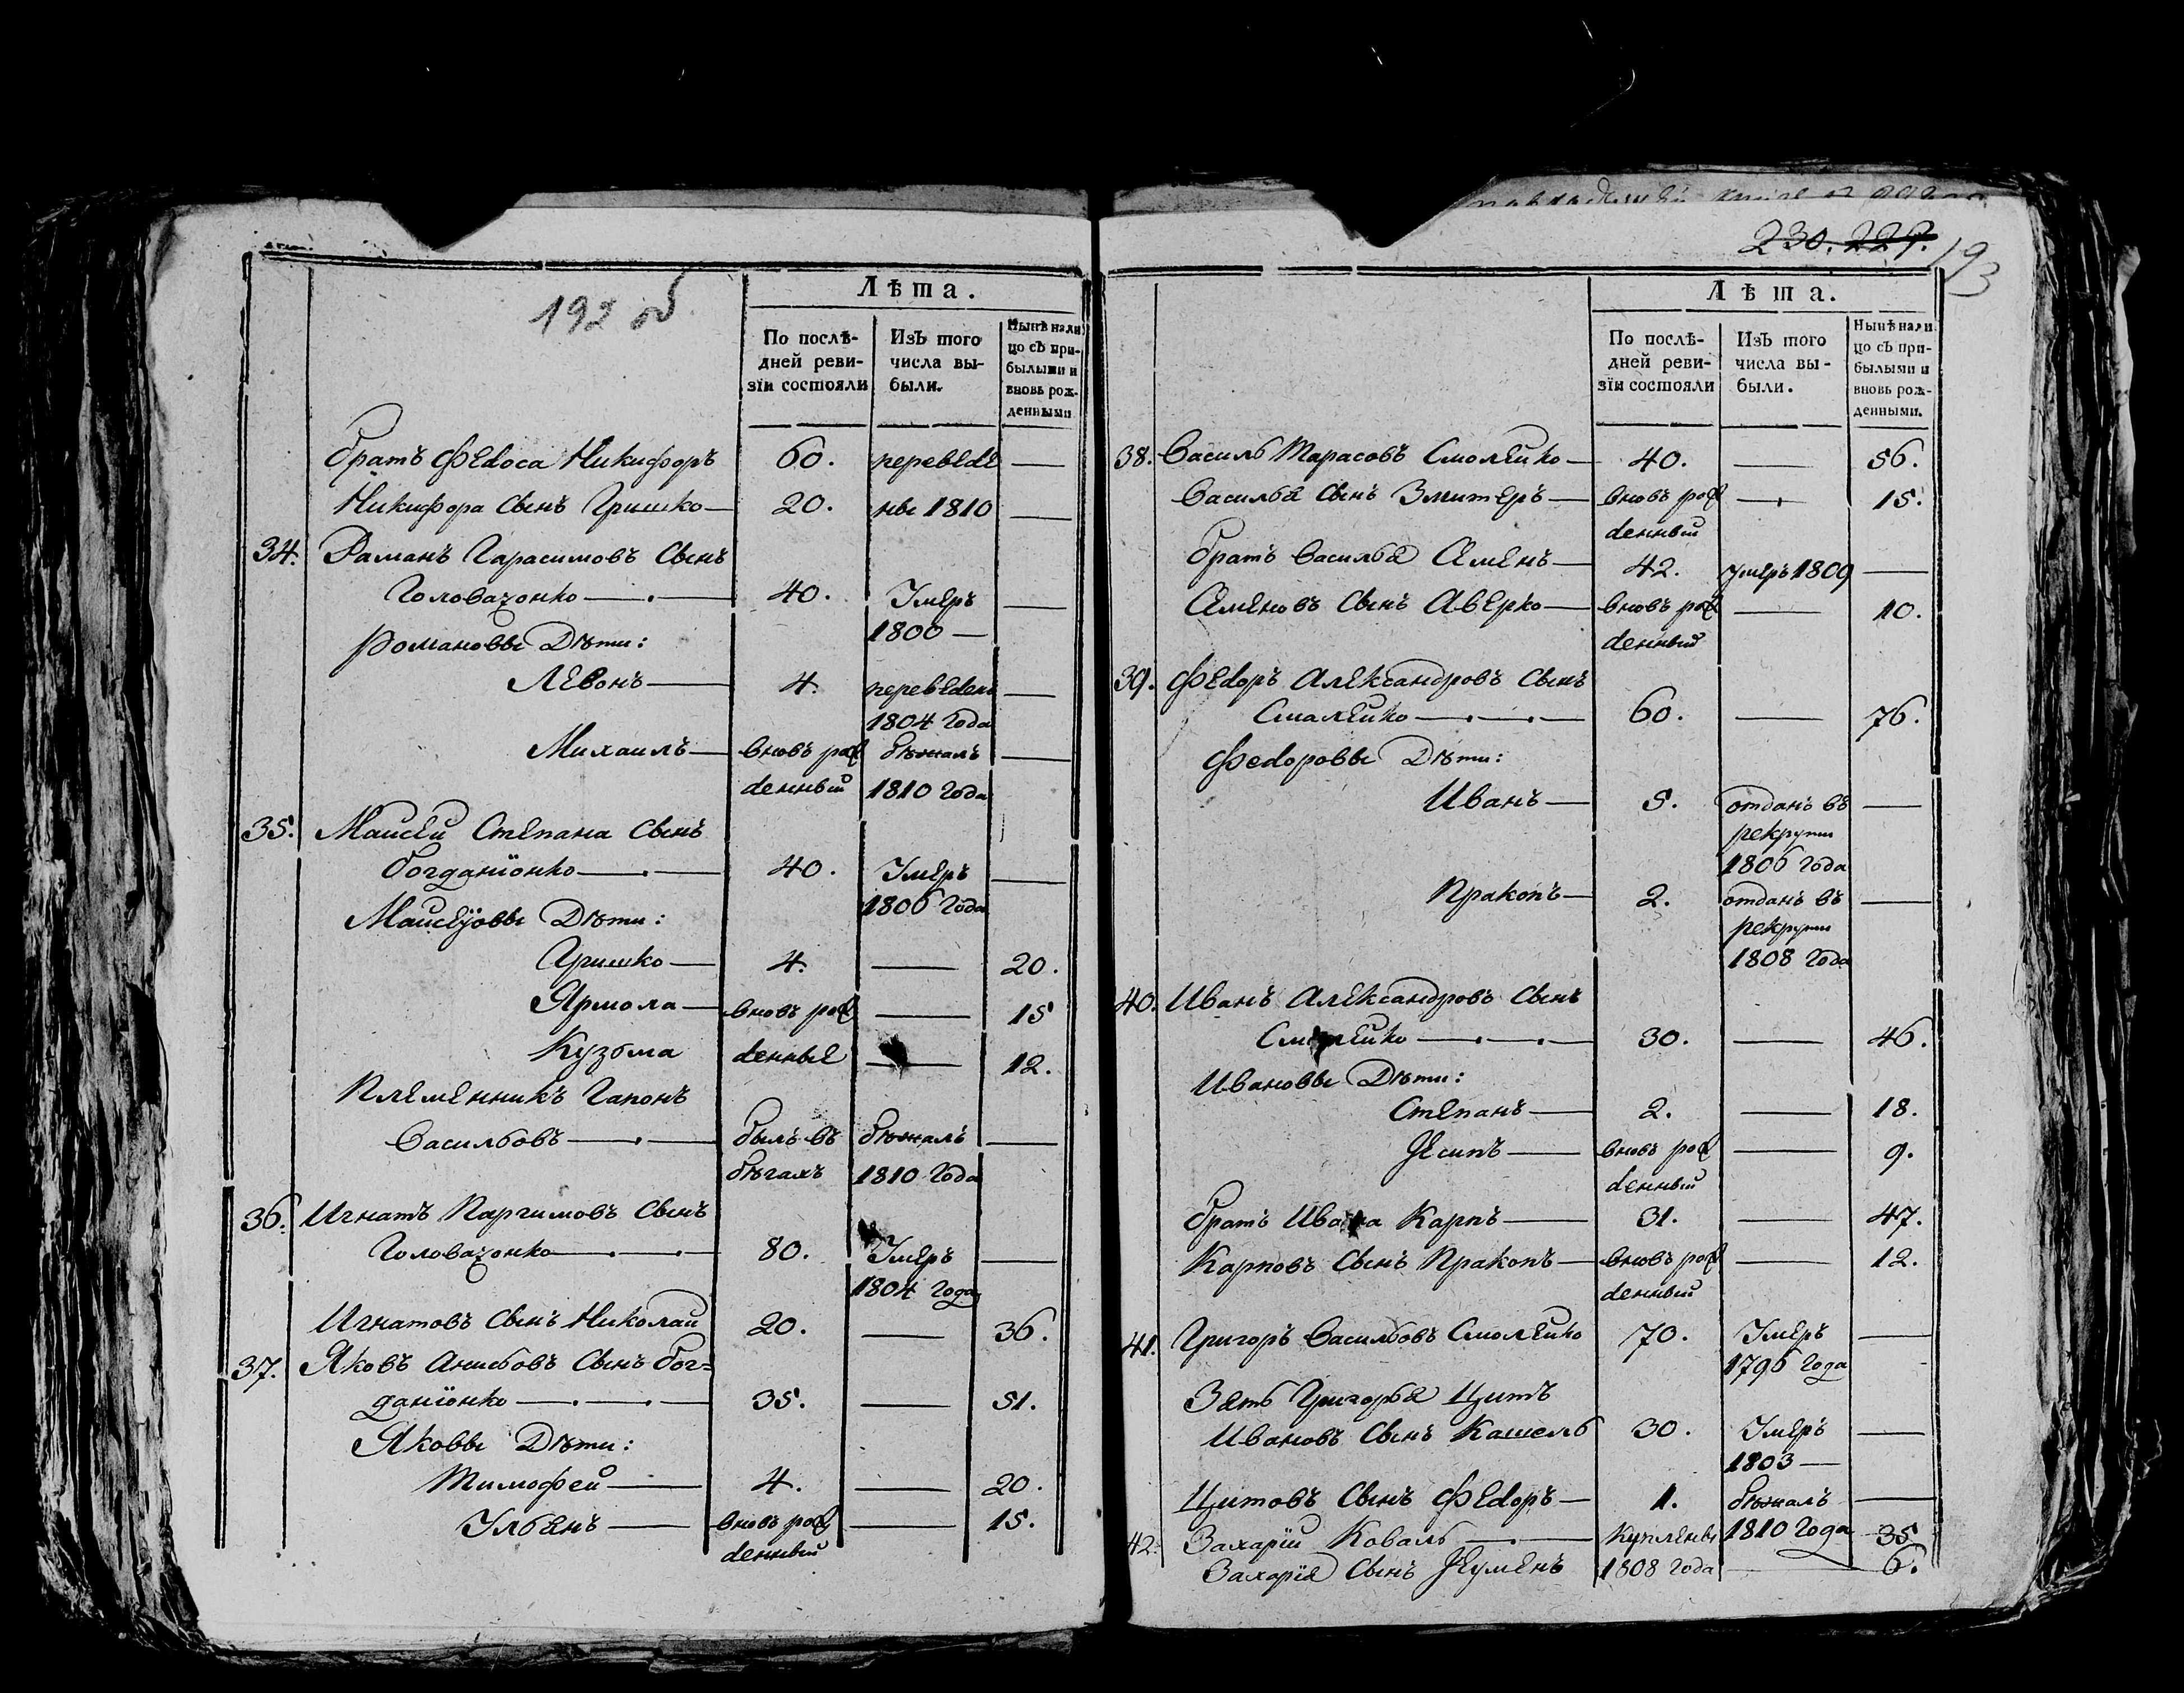 192 об
Лѣта.
По послѣ-
дней реви-
зїи состояли
Изъ того
числа вы-
были.
Нынѣ нали
цо съ при-
былыми и
вновь рож-
денными
братъ Федоса Никифоръ 60. переведе —
Никифора Сынъ Гришко — 20. ны 1810 —
34. Раманъ Гарасимовъ Сынъ
Головачонко — 40. Умеръ —
1800 —
Романовы Дѣти:
Левонъ — 4. переведенъ —
1804 года
Михаилъ — вновь рож бѣжалъ —
денный 1810 года
35. Маисей Степана Сынъ
Богданіонко — 40. Умеръ —
1806 года
Маисеўовы Дѣти:
Гришко — 4. — 20.
Ярмола — вновь рож — 15
Кузьма денные — 12.
Племенникъ Гапонъ
Васильовъ — былъ въ бѣжалъ —
бѣгахъ 1810 года
36. Игнатъ Паргимовъ Сынъ
Головачонко — 80. Умеръ —
1804 года
Игнатовъ Сынъ Николай 20. — 36.
37. Яковъ Анисьовъ Сынъ Бог=
даніонко — 35. — 51.
Яковы Дѣти:
Тимофей — 4. — 20.
Ульянъ — вновь рож — 15.
денный
230. 229. 193
Лѣта.
По послѣ-
дней реви-
зїи состояли
Изъ того
числа вы-
были.
Нынѣ нали
цо съ при-
былыми и
вновь рож-
денными.
38. Василь Тарасовъ Смолейко — 40. — 56.
Василья Сынъ Змитеръ — вновь рож — 15.
денный
братъ Василья Семенъ — 42. умеръ 1809 —
Семеновъ Сынъ Аверко — вновь рож — 10.
денный
39. Федоръ Александровъ Сынъ
Смалейко — 60. — 76.
Федоровы Дѣти:
Иванъ — 5. отданъ въ —
рекруты
1806 года
Пракопъ — 2. отданъ въ —
рекруты
1808 года
40. Иванъ Александровъ Сынъ
Смолейко — 30. — 46.
Ивановы Дѣти:
Степанъ — 2. — 18.
Есипъ — вновь рож — 9.
денный
братъ Ивана Карпъ — 31. — 47.
Карповъ Сынъ Пракопъ — вновь рож — 12.
денный
41. Григоръ Васильовъ Смолейко 70. Умеръ —
1796 года
Зять Григорья Цитъ
Ивановъ Сынъ Кашель 30. Умеръ —
1803 —
Цитовъ Сынъ Федоръ — 1. бѣжалъ —
1810 года
42. Захарій Коваль — куплены 35
Захарія Сынъ Еуменъ 1808 года — 6.